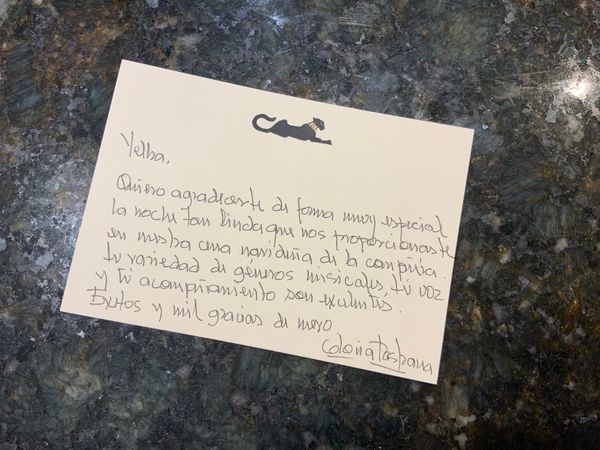 Yelba,
Quiero agradecerte de forma muy especial
la noche tan linda que nos proporcionaste
en nuestra cena navideña de la campiña.
tu variedad de géneros musicales, tú voz
y tú acompañamiento son exelentes.
Exitos y mil gracias de nuevo